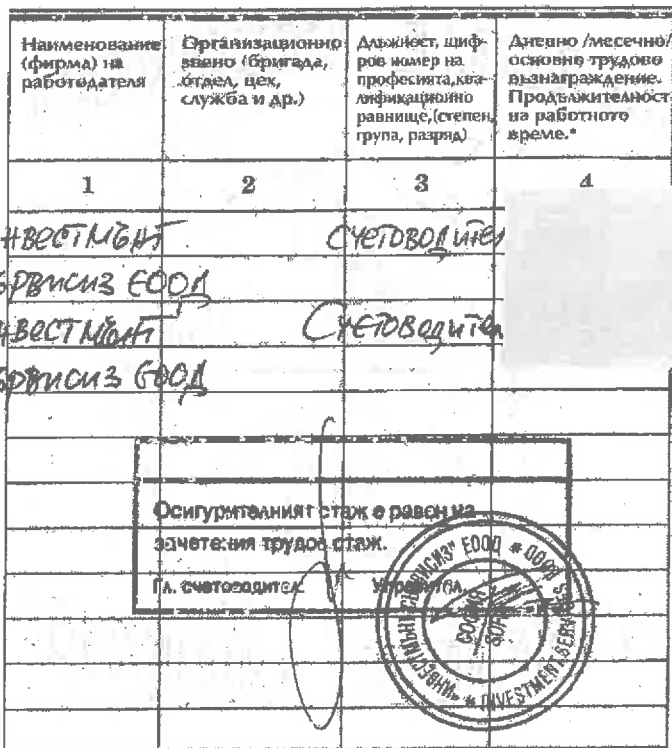 Наименование
(фирма) на
работодателя
Организационно
звено (бригада,
отдел, цех,
служба и др.)
Длъжност, шиф-
ров номер на
професията, ква-
лификационно
равнище, (степен,
група, разряд)
Дневно /месечно/
основно трудово
възнаграждение.
Продължителност
на работното
време.*
1 2 3 4
нвестмънт Счетоводител
ървисиз ЕООД
нвестмънт Счетоводител
ървисиз ЕООД
Осигурителният стаж е равен на
зачетения трудов стаж.
Гл. счетоводител Управител
"ИНВЕСТМЪНТ СЪРВИСИЗ" ЕООД * INVESTMENT SERVICES
СОФИЯ